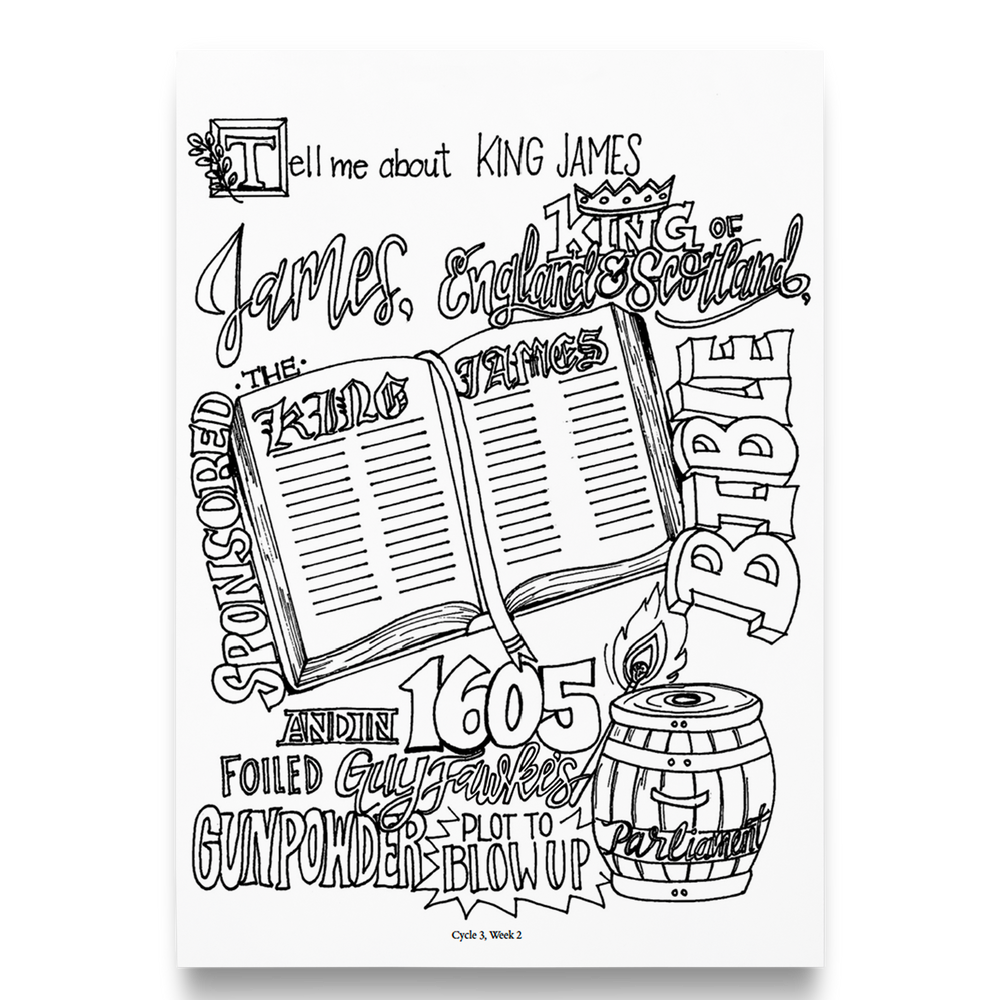 Tell me about KING JAMES
James, KING OF
England & Scotland,
SPONSORED
·THE·
KING JAMES
BIBLE
AND IN 1605
FOILED Guy Fawkes's
GUNPOWDER PLOT TO
BLOW UP
Parliament
Cycle 3, Week 2